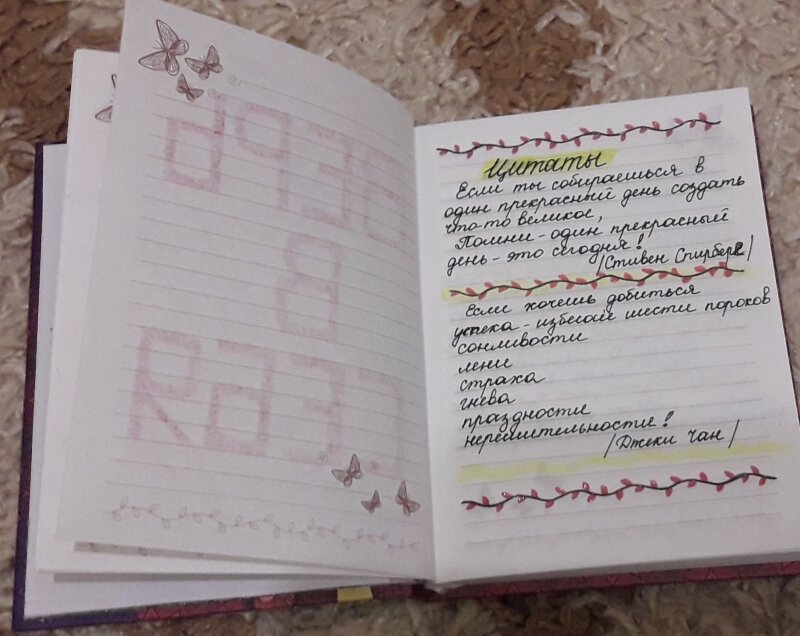 Цитаты
Если ты собираешься в
один прекрасный день создать
что-то великое,
Помни - один прекрасный
день - это сегодня!
/Стивен Спирберг/
Если хочешь добиться
успеха - избегай шести пороков
сонливости
лени
страха
гнева
праздности
нерешительности!
/Джеки Чан/